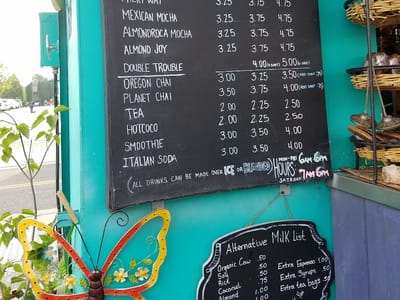 MILKY WAY 3.25 3.75 4.75
MEXICAN MOCHA 3.25 3.75 4.75
ALMONDROCA MOCHA 3.25 3.75 4.75
ALMOND JOY 3.25 3.75 4.75
DOUBLE TROUBLE 4.00 5.00
OREGON CHAI 3.00 3.50
PLANET CHAI 3.50 3.75 4.00
TEA 2.00 2.25 2.50
HOTCOCO 2.00 2.25 2.50
SMOOTHIE 3.00 3.50 4.00
ITALIAN SODA 3.00 3.50 4.00
(ALL DRINKS CAN BE MADE OVER ICE OR BLENDED)
MON-FRI 6AM 6PM
HOURS
SATURDAY 7AM 6PM
Alternative Milk List
Organic Cow .50
Soy .50
Rice .50
Coconut .50
Almond 1.00
Extra Espresso
Extra Syrup .50
Extra tea bag .50